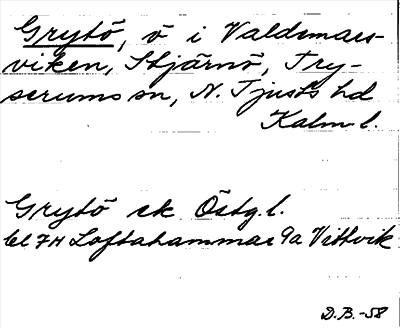 Grytö, ö i Valdemars-
viken, Stjärnö, Try-
serums sn, N. Tjusts hd
Kalm l.
Grytö ek Östg.l.
bl 7H Loftahammar 9a Vittvik
D.B.-58